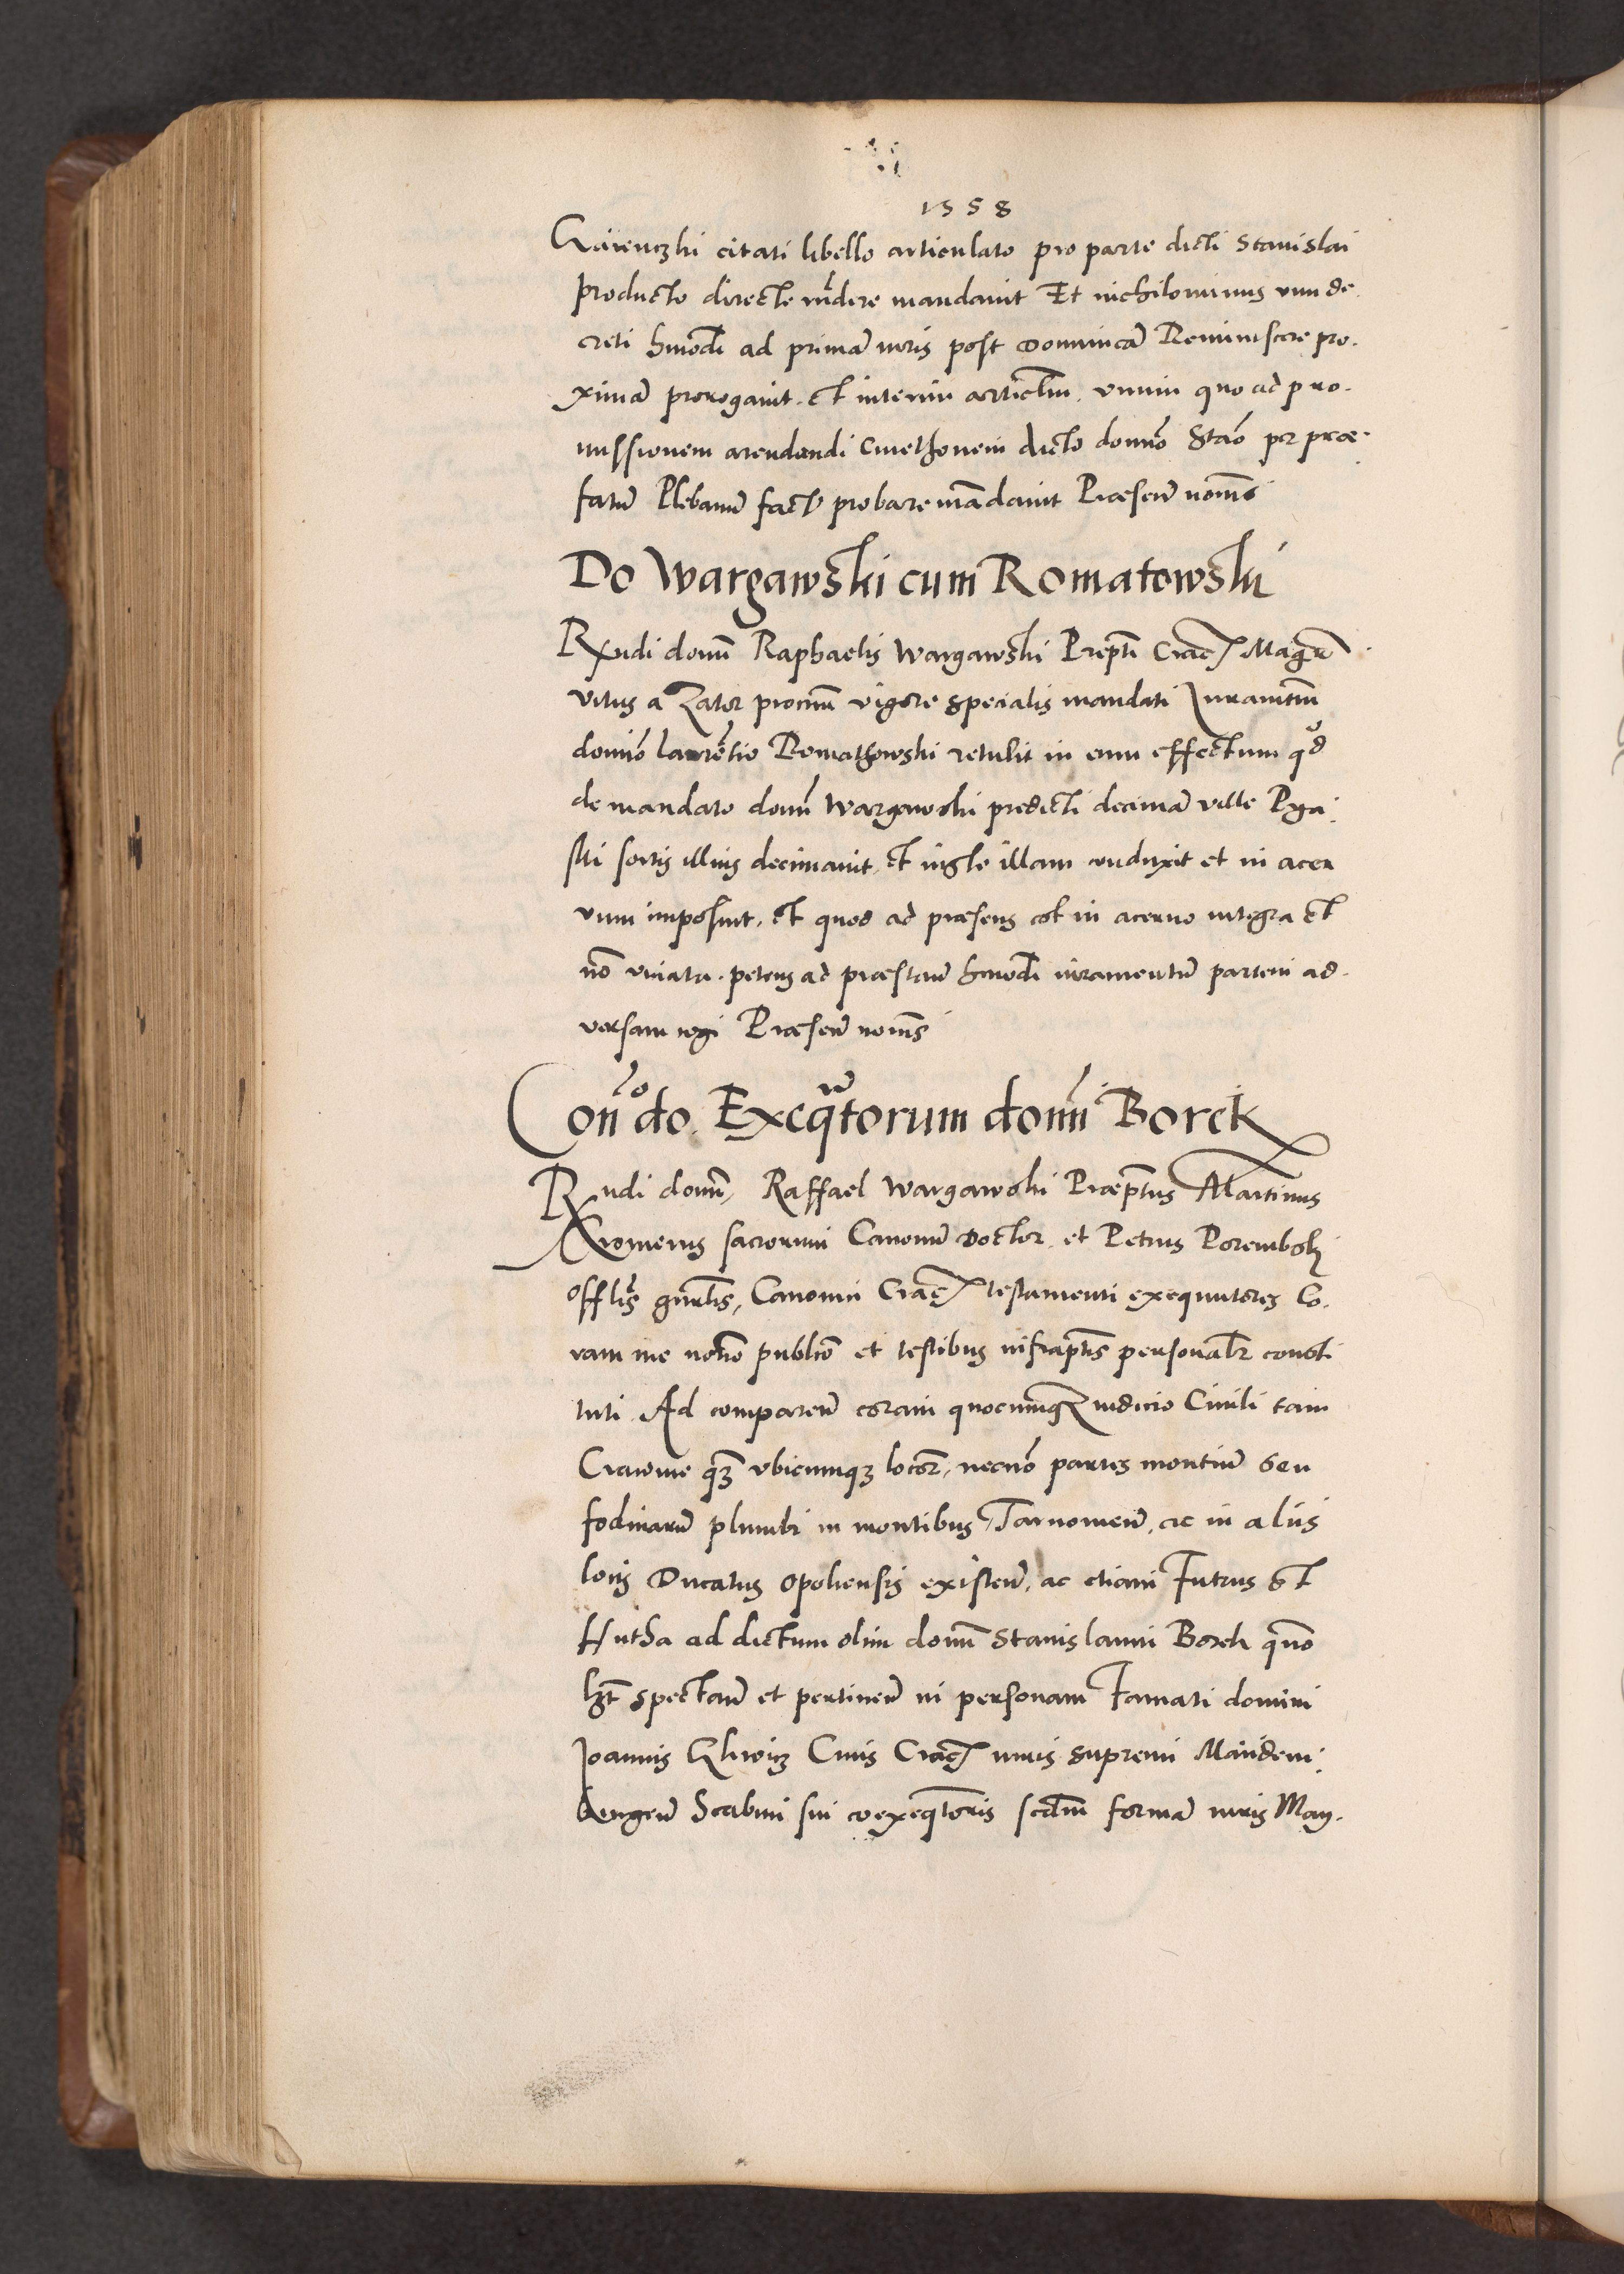 1558
citati libello articulato pro parte dicti Stanislai
producto directe rñdere mandavit Et nichilominus vim de
creti hmõdi ad primã iuris post Dominicã Reminiscere pro.
ximã prorogavit. et interim articlm. unum quo ad pro.
missionem arendandi Cmethonem dicto domno Stão per præ.
fatũ Plebanũ factã probare mãdavit Præsenũ nomĩs
Do Wargawski cum Romatowski
Rxndi domĩ Raphaelis Wargawski Prepti Crac Magr
Vitus a Zator procurm vigore specialis mandati Iuramtum
domĩo laurẽtio Romathowski retulit in eum effectum qđ
de mandato domĩ Wargawski predicti decimã ville
sorts illius decimavit, et ingle illam conduxit et in acer
vum imposuit, et quod ad præsens est in acervo integra et
nõ viciata. petens ad præstanũ hmõdi iuramentũ partem ad.
versam cogi Præsenũ nomĩs
Conõ do. Exeqũtorum domĩ Borek
Rndi domĩ, Raffael Wargawski Præptus Martinus
Cromerus sacrorum Canonũ Doctor. et Petrus Porembsky
Offlis gnrlis, Canonici Crac testamenti exequutores Co.
ram me notõ publico et testibus infraptis personalr consti
tuti. Ad comparenũ coram quocumqz iudicio Civili tam
Cracovie qz ubicumqz locor, necnõ partes montium seu
fodinarũ plumbi in montibus Tarnovicenũ, ac in aliis
locis Ducatus Opoliensis existenũ, ac etiam Futrus et
Hutha ad dictum olim domĩ Stanislaum Borek quõo
lĩbt spectanũ et pertinenũ in personam Famati domini
Joannis Civis Crac iuris supremi Maideni.
burgenũ Scabini sui coexeqtoris scdm formã iuris May.